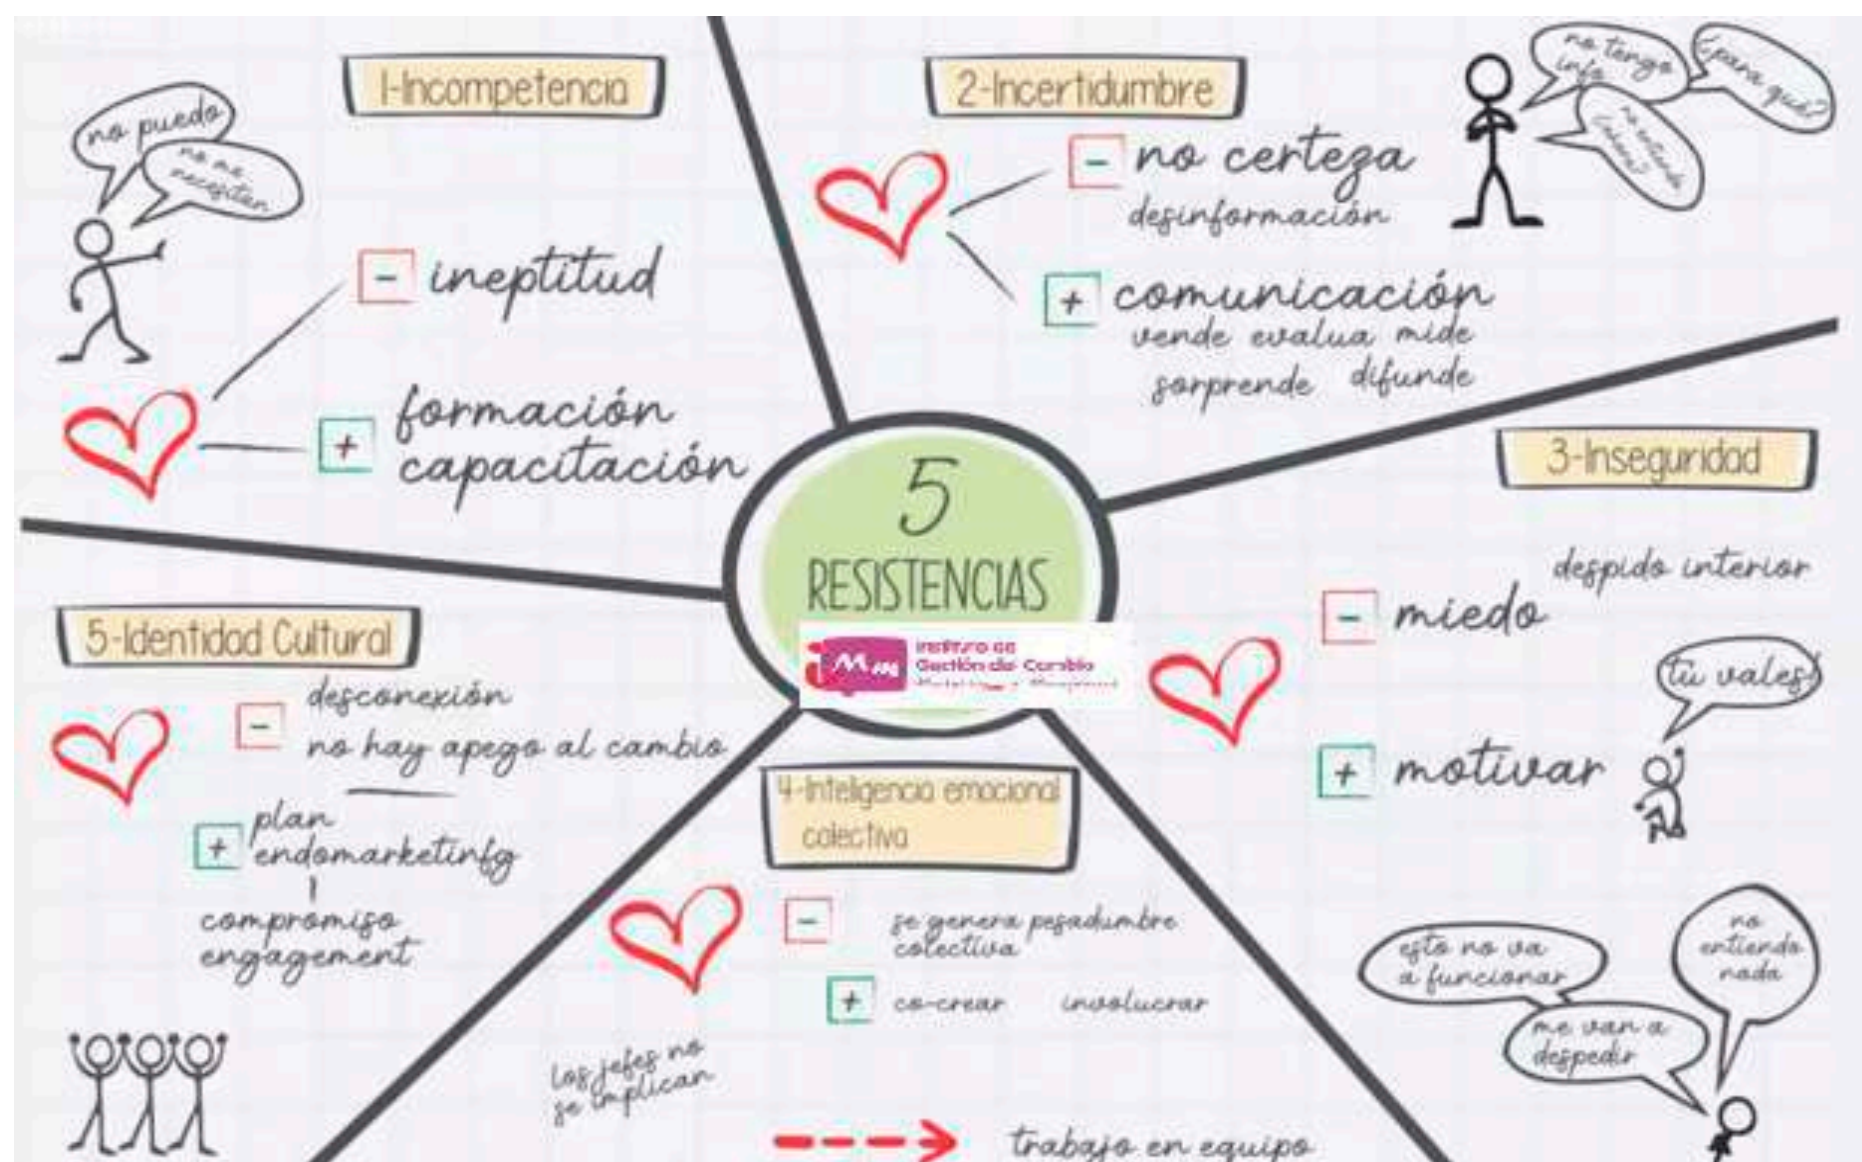 1-Incompetencia
no puedo
no me
necesitan
- ineptitud
+ formación
capacitación
2-Incertidumbre
no tengo
info
¿para qué?
no entiendo
- no certeza
desinformación
+ comunicación
vende evalua mide
sorprende difunde
5
RESISTENCIAS
Instituto de
Gestión del Cambio
3-Inseguridad
despido interior
- miedo
tú vales!
+ motivar
esto no va
a funcionar
no
entiendo
nada
me van a
despedir
4-Inteligencia emocional
colectiva
- se genera pesadumbre
colectiva
+ co-crear involucrar
los jefes no
se implican
trabajo en equipo
5-Identidad Cultural
- desconexión
no hay apego al cambio
+ plan
endomarketinfg
compromiso
engagement